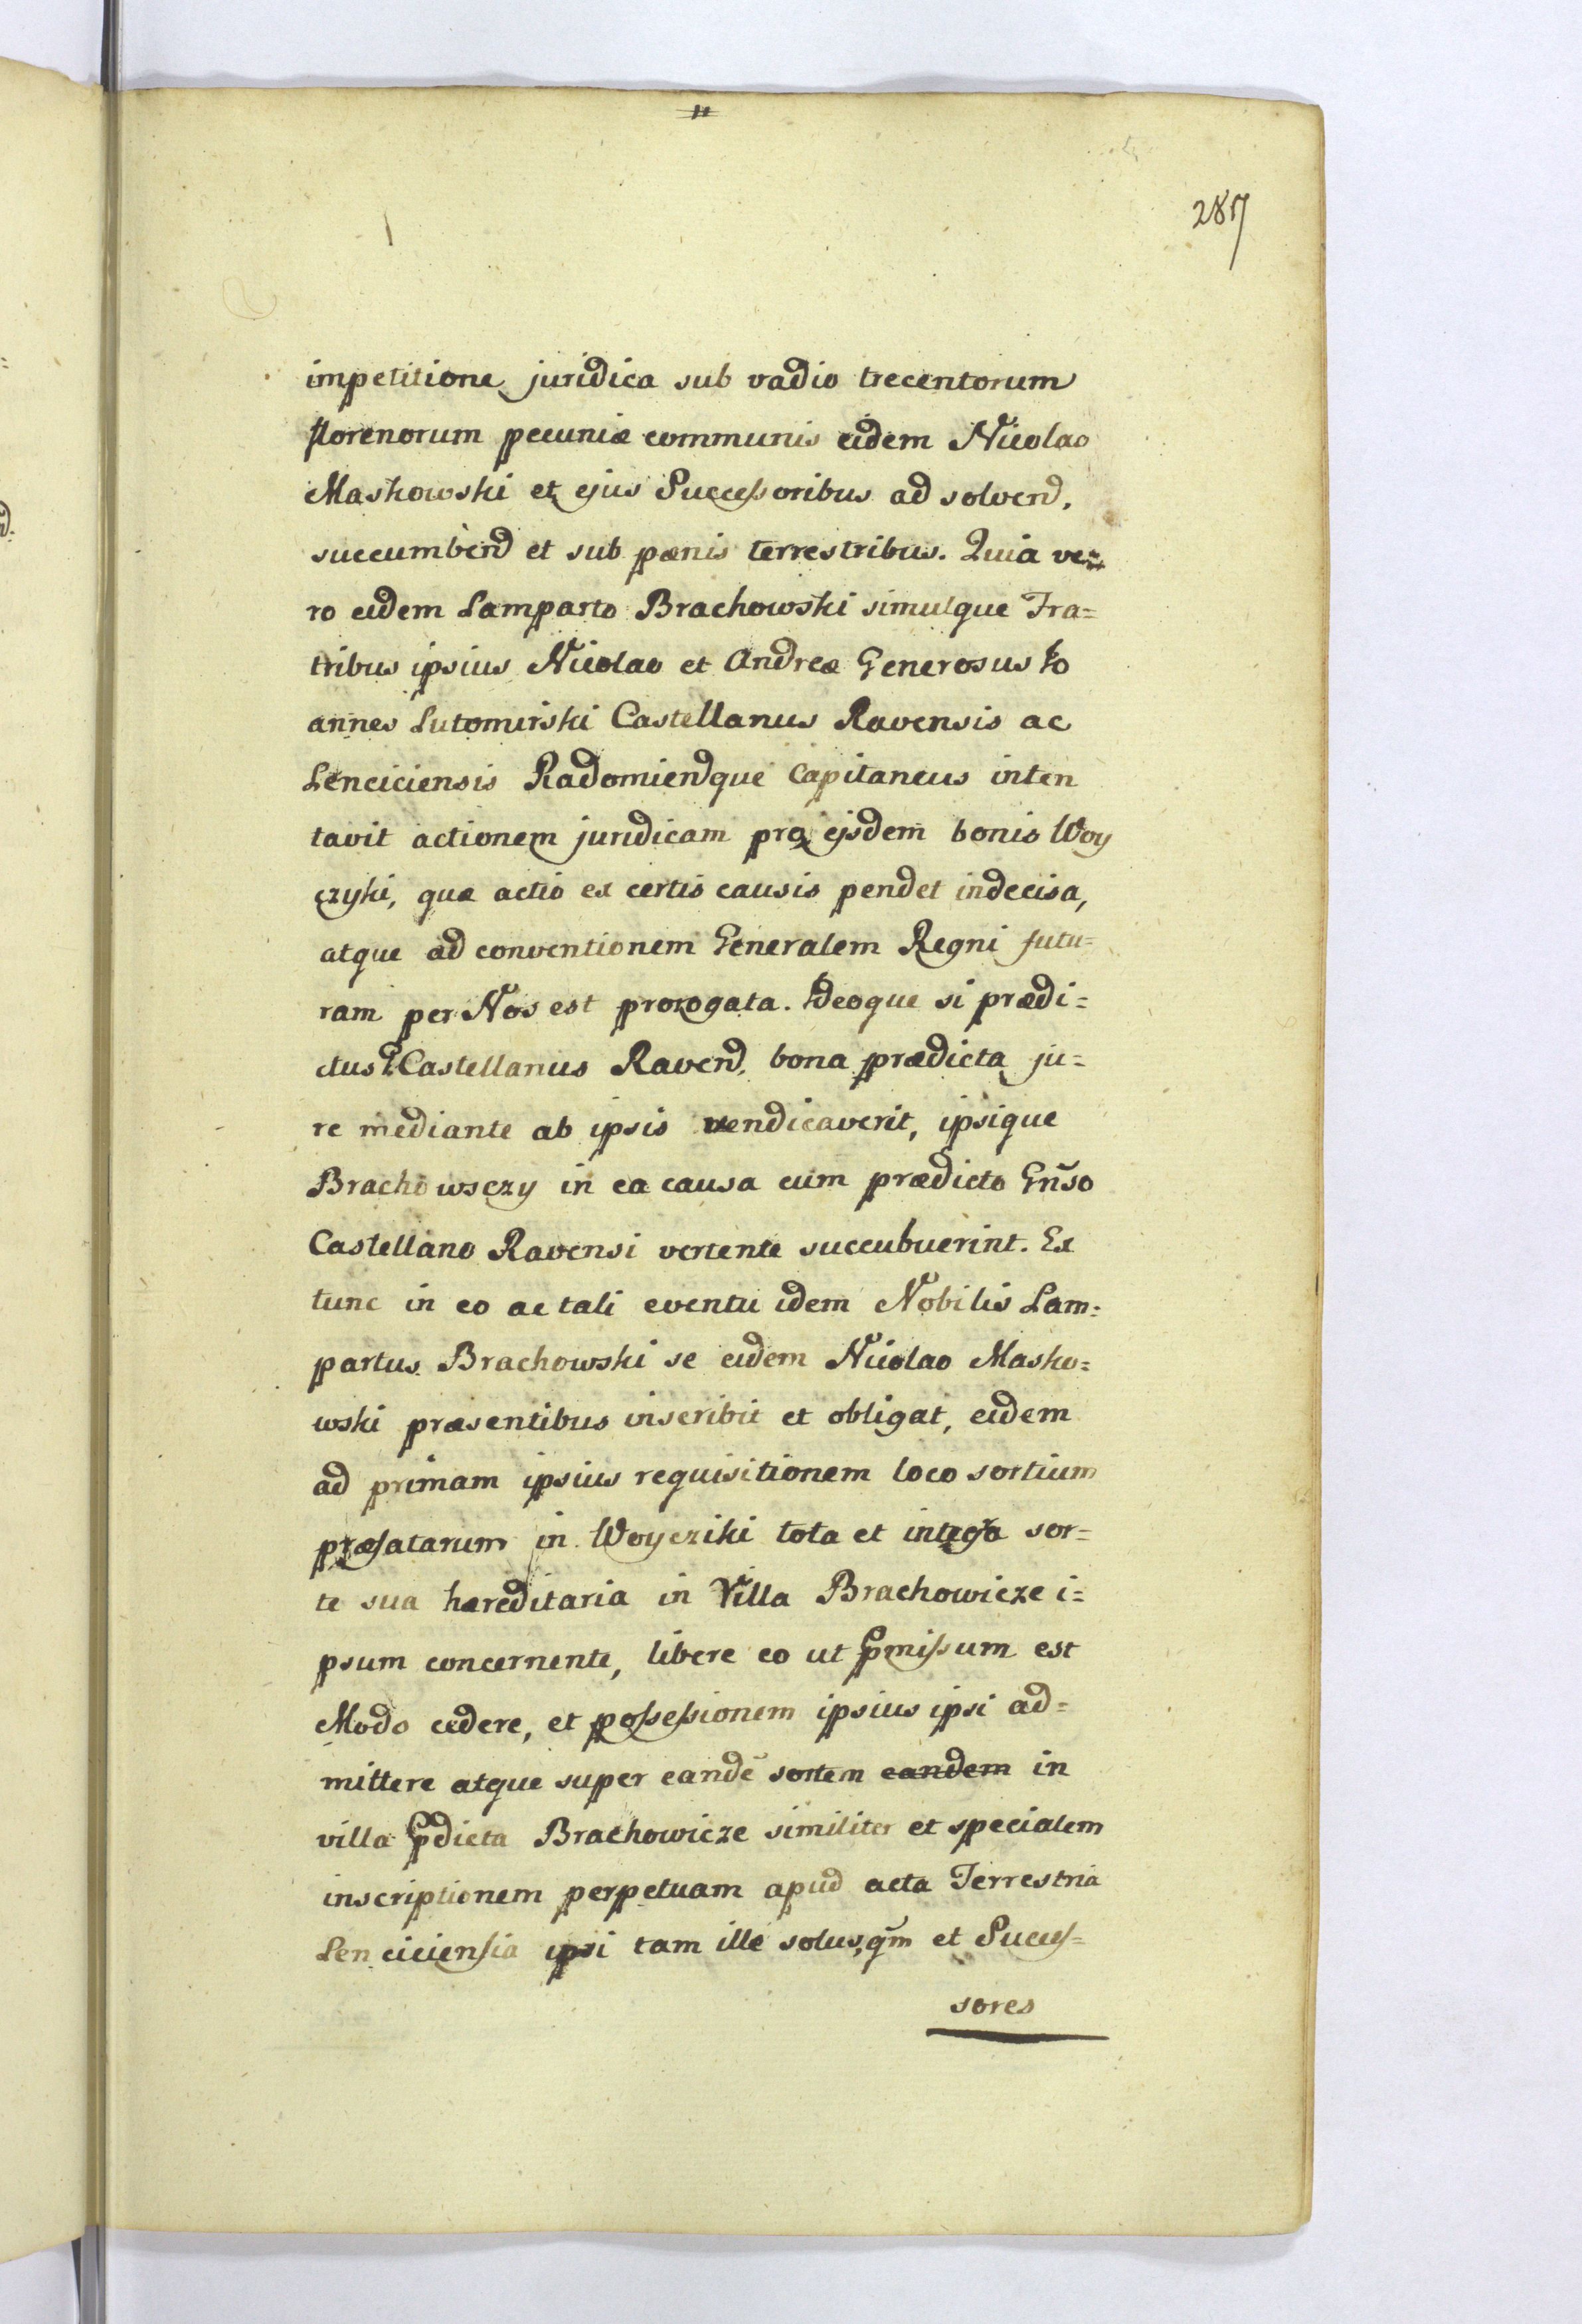 287
impetitione juridica sub vadio trecentorum
florenorum pecuniæ communis eidem Nicolao
Maskowski et ejus Successoribus ad solvend.
succumbend et sub pœnis terrestribus. Quia ve=
ro eidem Lamparto Brachowski simulque Fra=
tribus ipsius Nicolao et Andreæ Generosus Jo
annes Lutomirski Castellanus Ravensis ac
Lenciciensis Radomiendque Capitaneus inten
tavit actionem juridicam pro ejsdem bonis Woy
czyki, quæ actio ex certis causis pendet indecisa,
atque ad conventionem Generalem Regni futu=
ram per Nos est prorogata. Ideoque si prædi=
ctus G. Castellanus Ravend, bona prædicta ju=
re mediante ab ipsis vendicaverit, ipsique
Brachowsczy in ea causa cum prædicto Gñso
Castellano Ravensi vertente succubuerint. Ex
tunc in eo ac tali eventu idem Nobilis Lam=
partus Brachowski se eidem Nicolao Masko=
wski præsentibus inscribit et obligat, eidem
ad primam ipsius requisitionem loco sortium
præfatarum in Woycziki tota et integra sor=
te sua hæreditaria in Villa Brachowicze i=
psum concernente, libere eo ut pmissum est
Modo cedere, et possessionem ipsius ipsi ad=
mittere atque super eandē sortem eandem in
villa pdicta Brachowicze similiter et specialem
inscriptionem perpetuam apud acta Terrestria
Lenciciensia ipsi tam ille solus, qm̃ et Succes=
sores